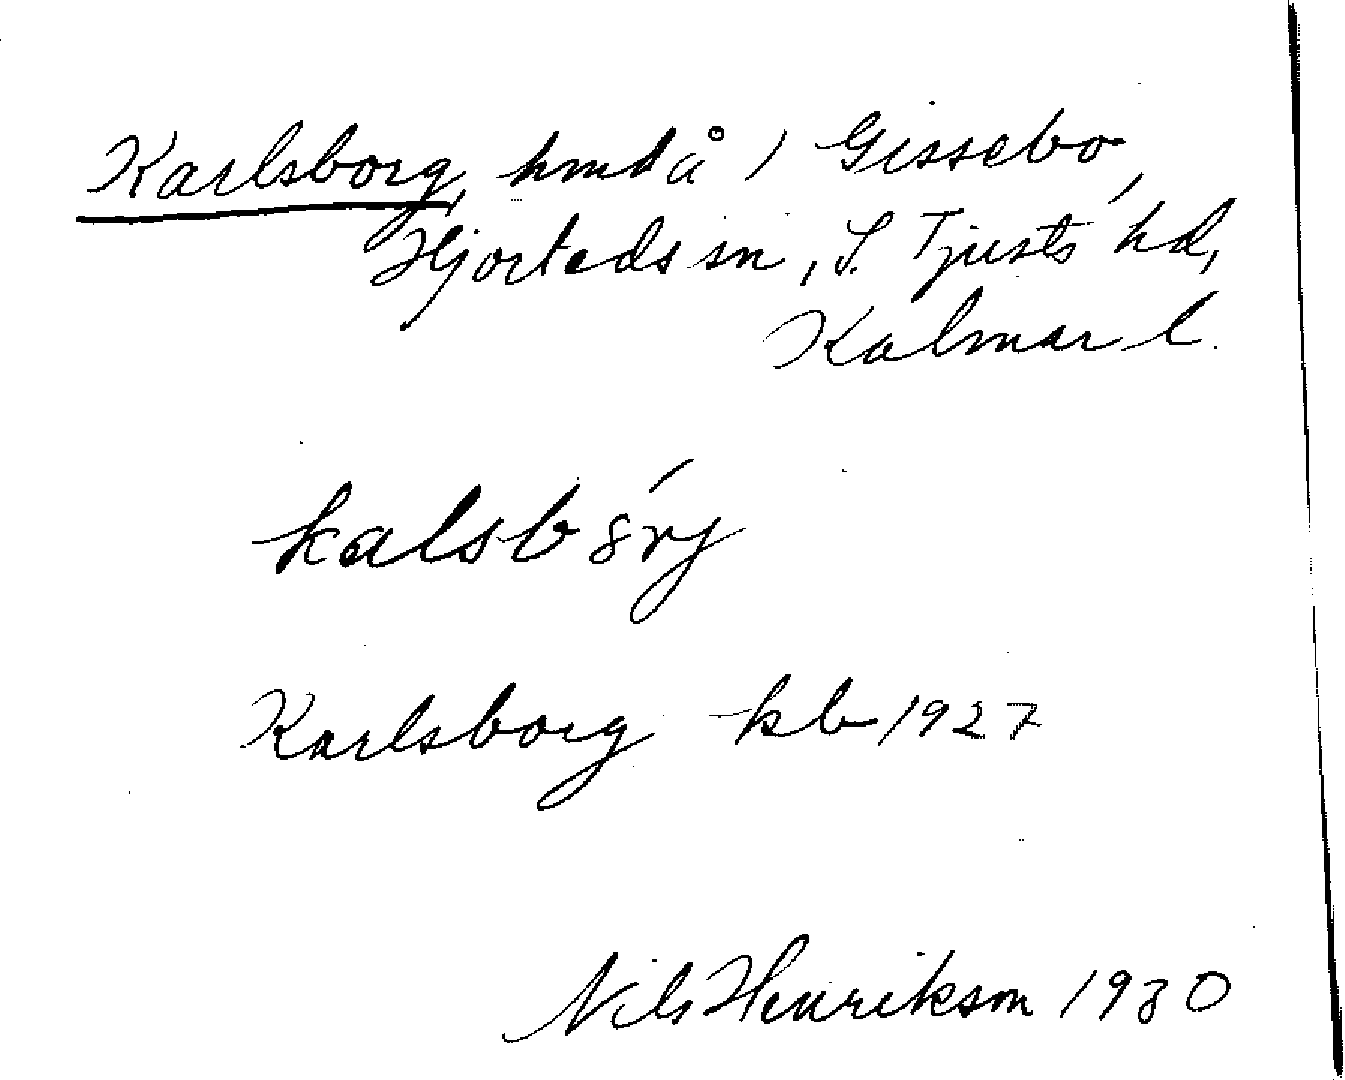 Karlsborg, hmd å / Gissebo,
Hjorteds sn, S. Tjusts hd,
Kalmar l.
kalsbórj
Karlsborg kb 1927
Nils Henrikson 1930